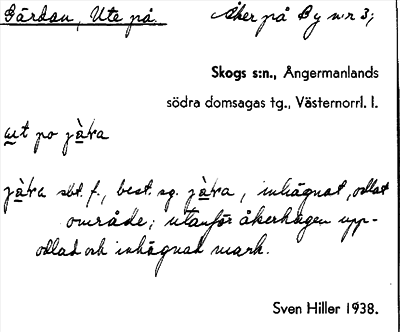 Gärdan, Ute på. Åker på By nr 3;
Skogs s:n., Ångermanlands
södra domsagas tg., Västernorrl. l.
ut po jàʀa
jàʀa sbt. f., best. sg. jàʀa, inhägnat, odlat
område; utanför åkerhagen upp-
odlad och inhägnad mark.
Sven Hiller 1938.